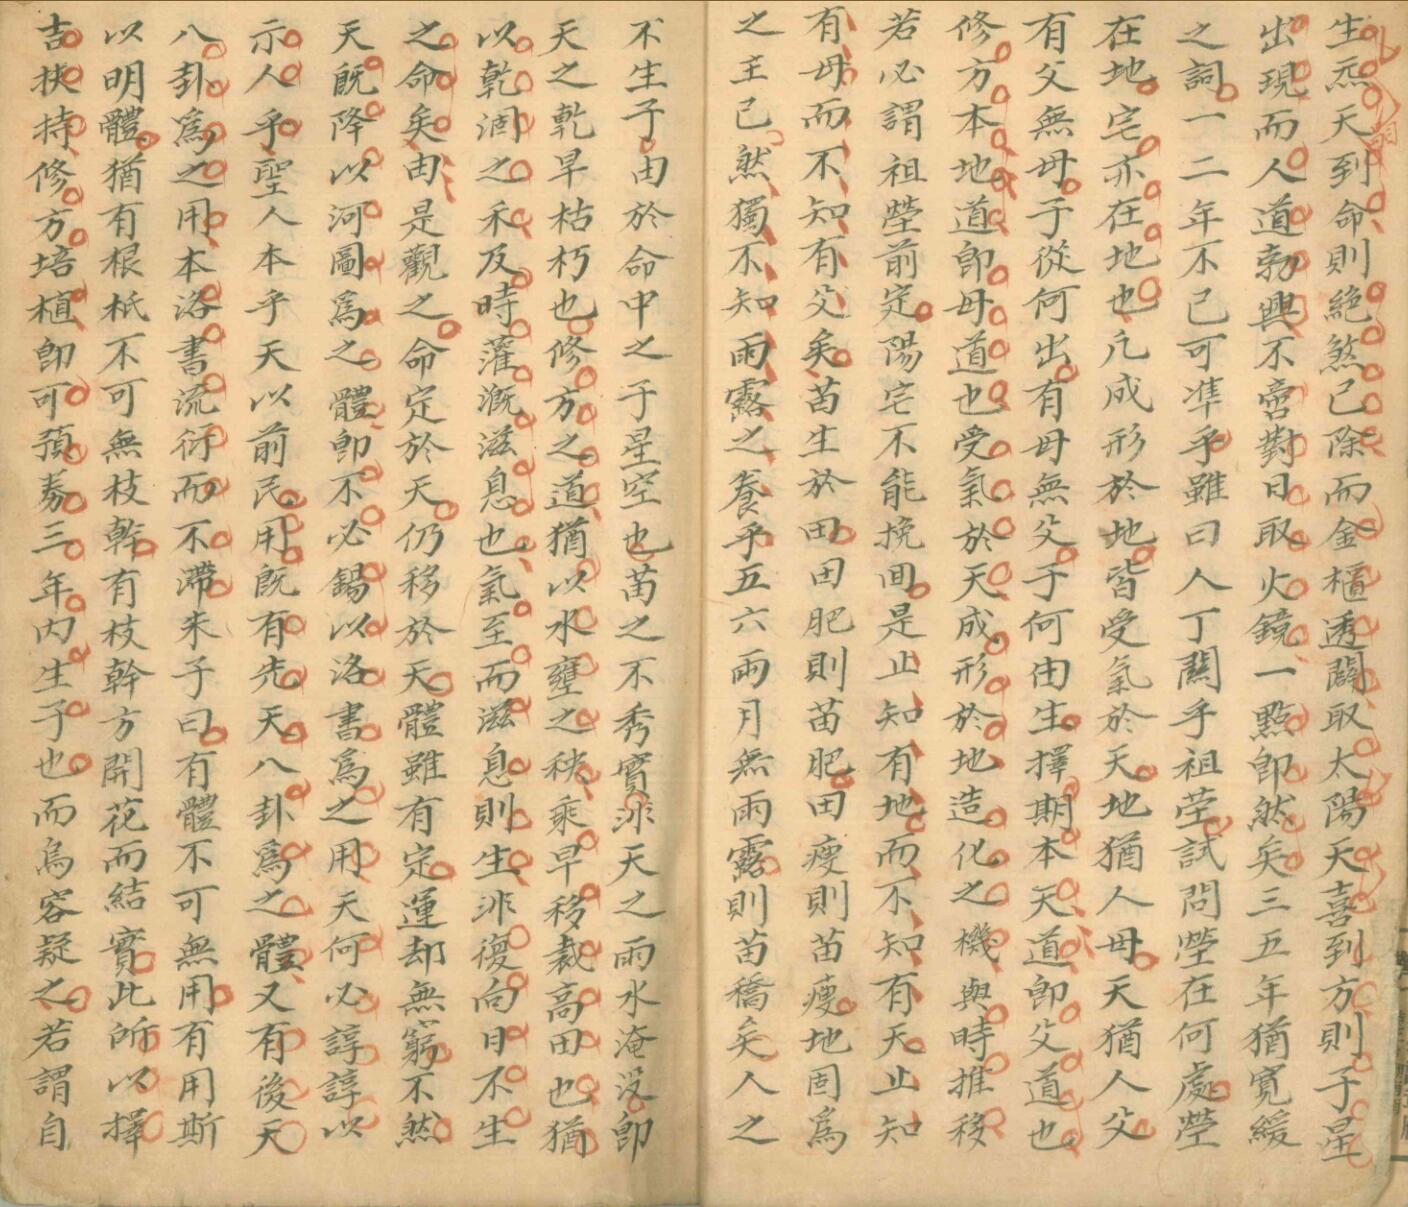 生炁天到命則絕煞已除而金櫃透闢取太陽天喜到方則子星
出現而人道勃興不啻對日取火鏡一點即然矣三五年猶寬緩
之詞一二年不已可準乎雖曰人丁關乎祖塋試問塋在何處塋
在地宅亦在地也凢成形於地皆受氣於天地猶人母天猶人父
有父無母子從何出有母無父子何由生擇期本天道即父道也
修方本地道即母道也受氣於天成形於地造化之機與時推移
若必謂祖塋前定陽宅不能挽囬是止知有地而不知有天止知
有母而不知有父矣苗生於田田肥則苗肥田瘦則苗瘦地固為
之主已然獨不知雨露之養乎五六兩月無雨露則苗槁矣人之
不生子由於命中之子星空也苗之不秀實非天之雨水淹沒即
天之乾旱枯朽也修方之道猶以水壅之秧乘旱移裁高田也猶
以乾涸之禾及時灌溉滋息也氣至而滋息則生非復向日不生
之命矣由是觀之命定於天仍移於天體雖有定運却無窮不然
天既降以河圖為之體即不必錫以洛書為之用天何必諄諄以
示人乎聖人本乎天以前民用既有先天八卦為之體又有後天
八卦為之用本洛書流衍而不滯朱子曰有體不可無用有用斯
以明體猶有根柢不可無枝幹有枝幹方開花而結實此所以擇
吉扶持修方培植即可預券三年内生子也而烏容疑之若謂自